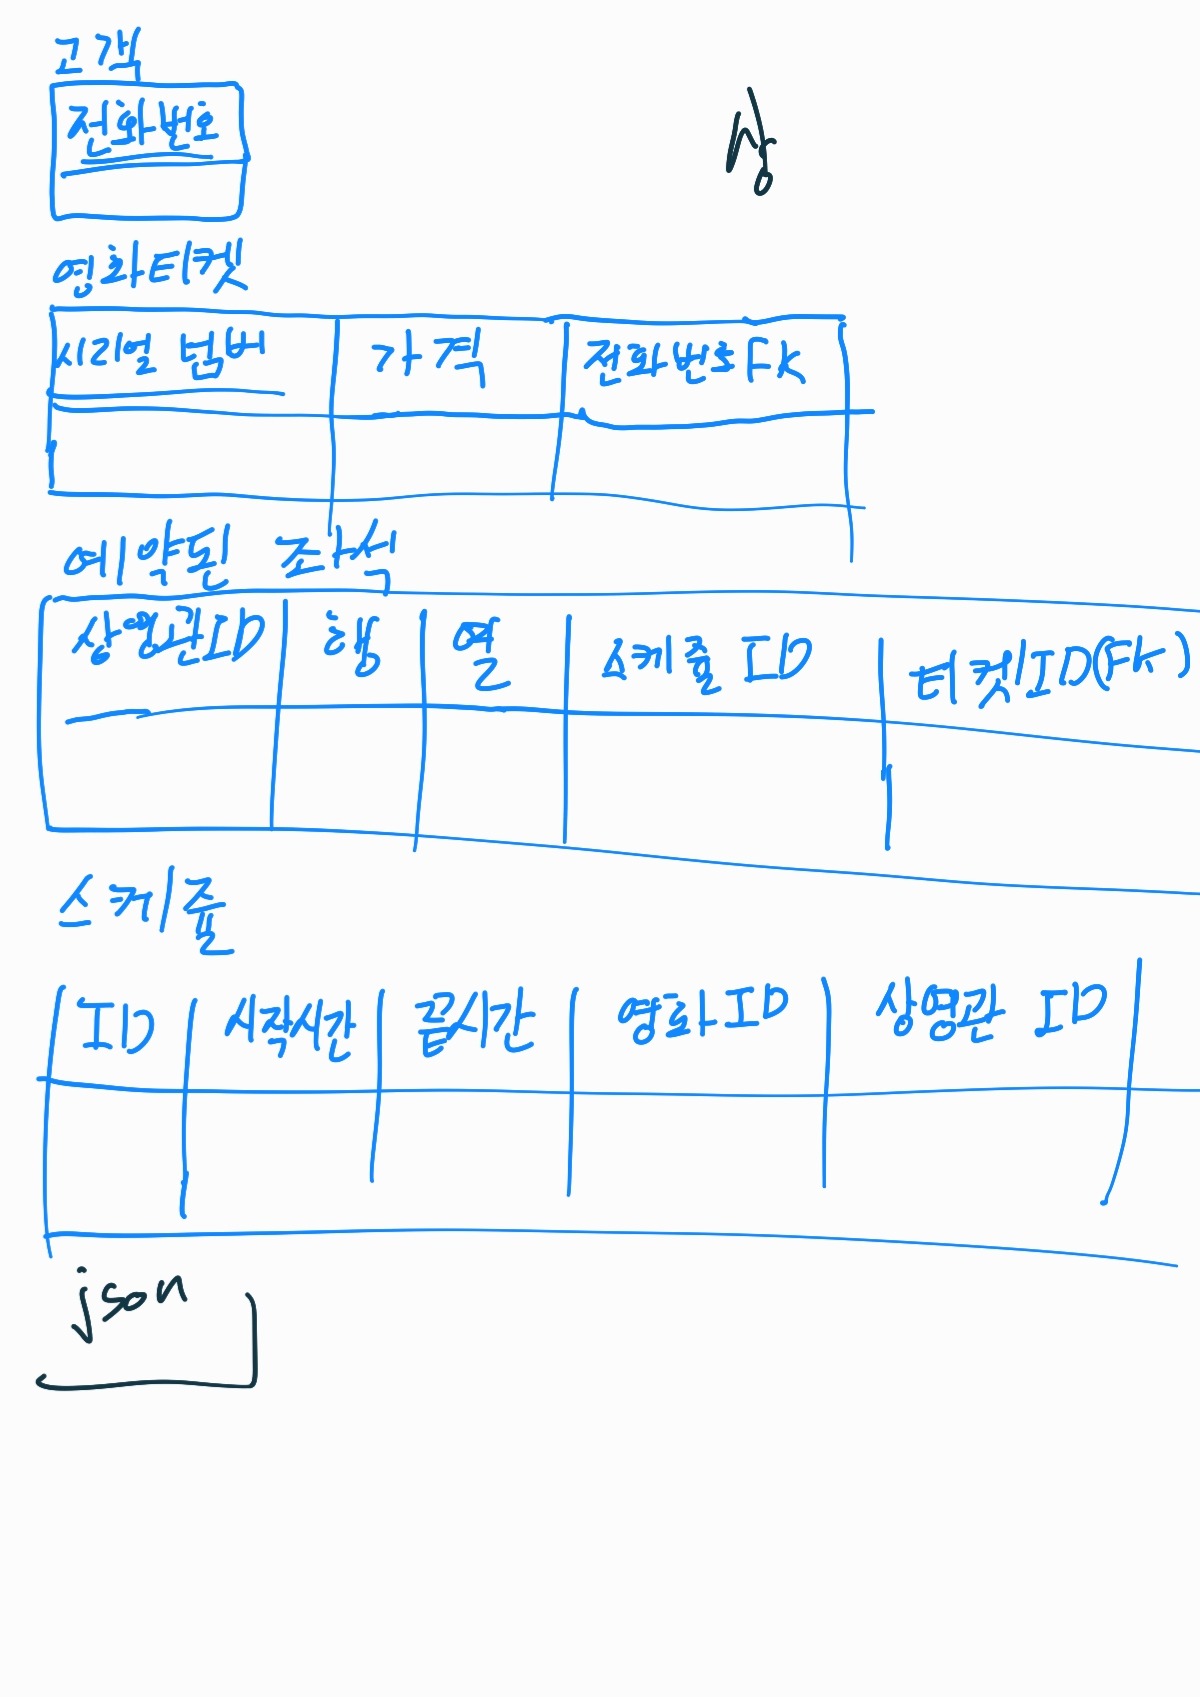 고객
전화번호
상
영화티켓
시리얼 넘버 가격 전화번호FK
예약된 좌석
상영관ID 행 열 스케줄 ID 티켓ID(FK)
스케쥴
ID 시작시간 끝시간 영화ID 상영관 ID
json